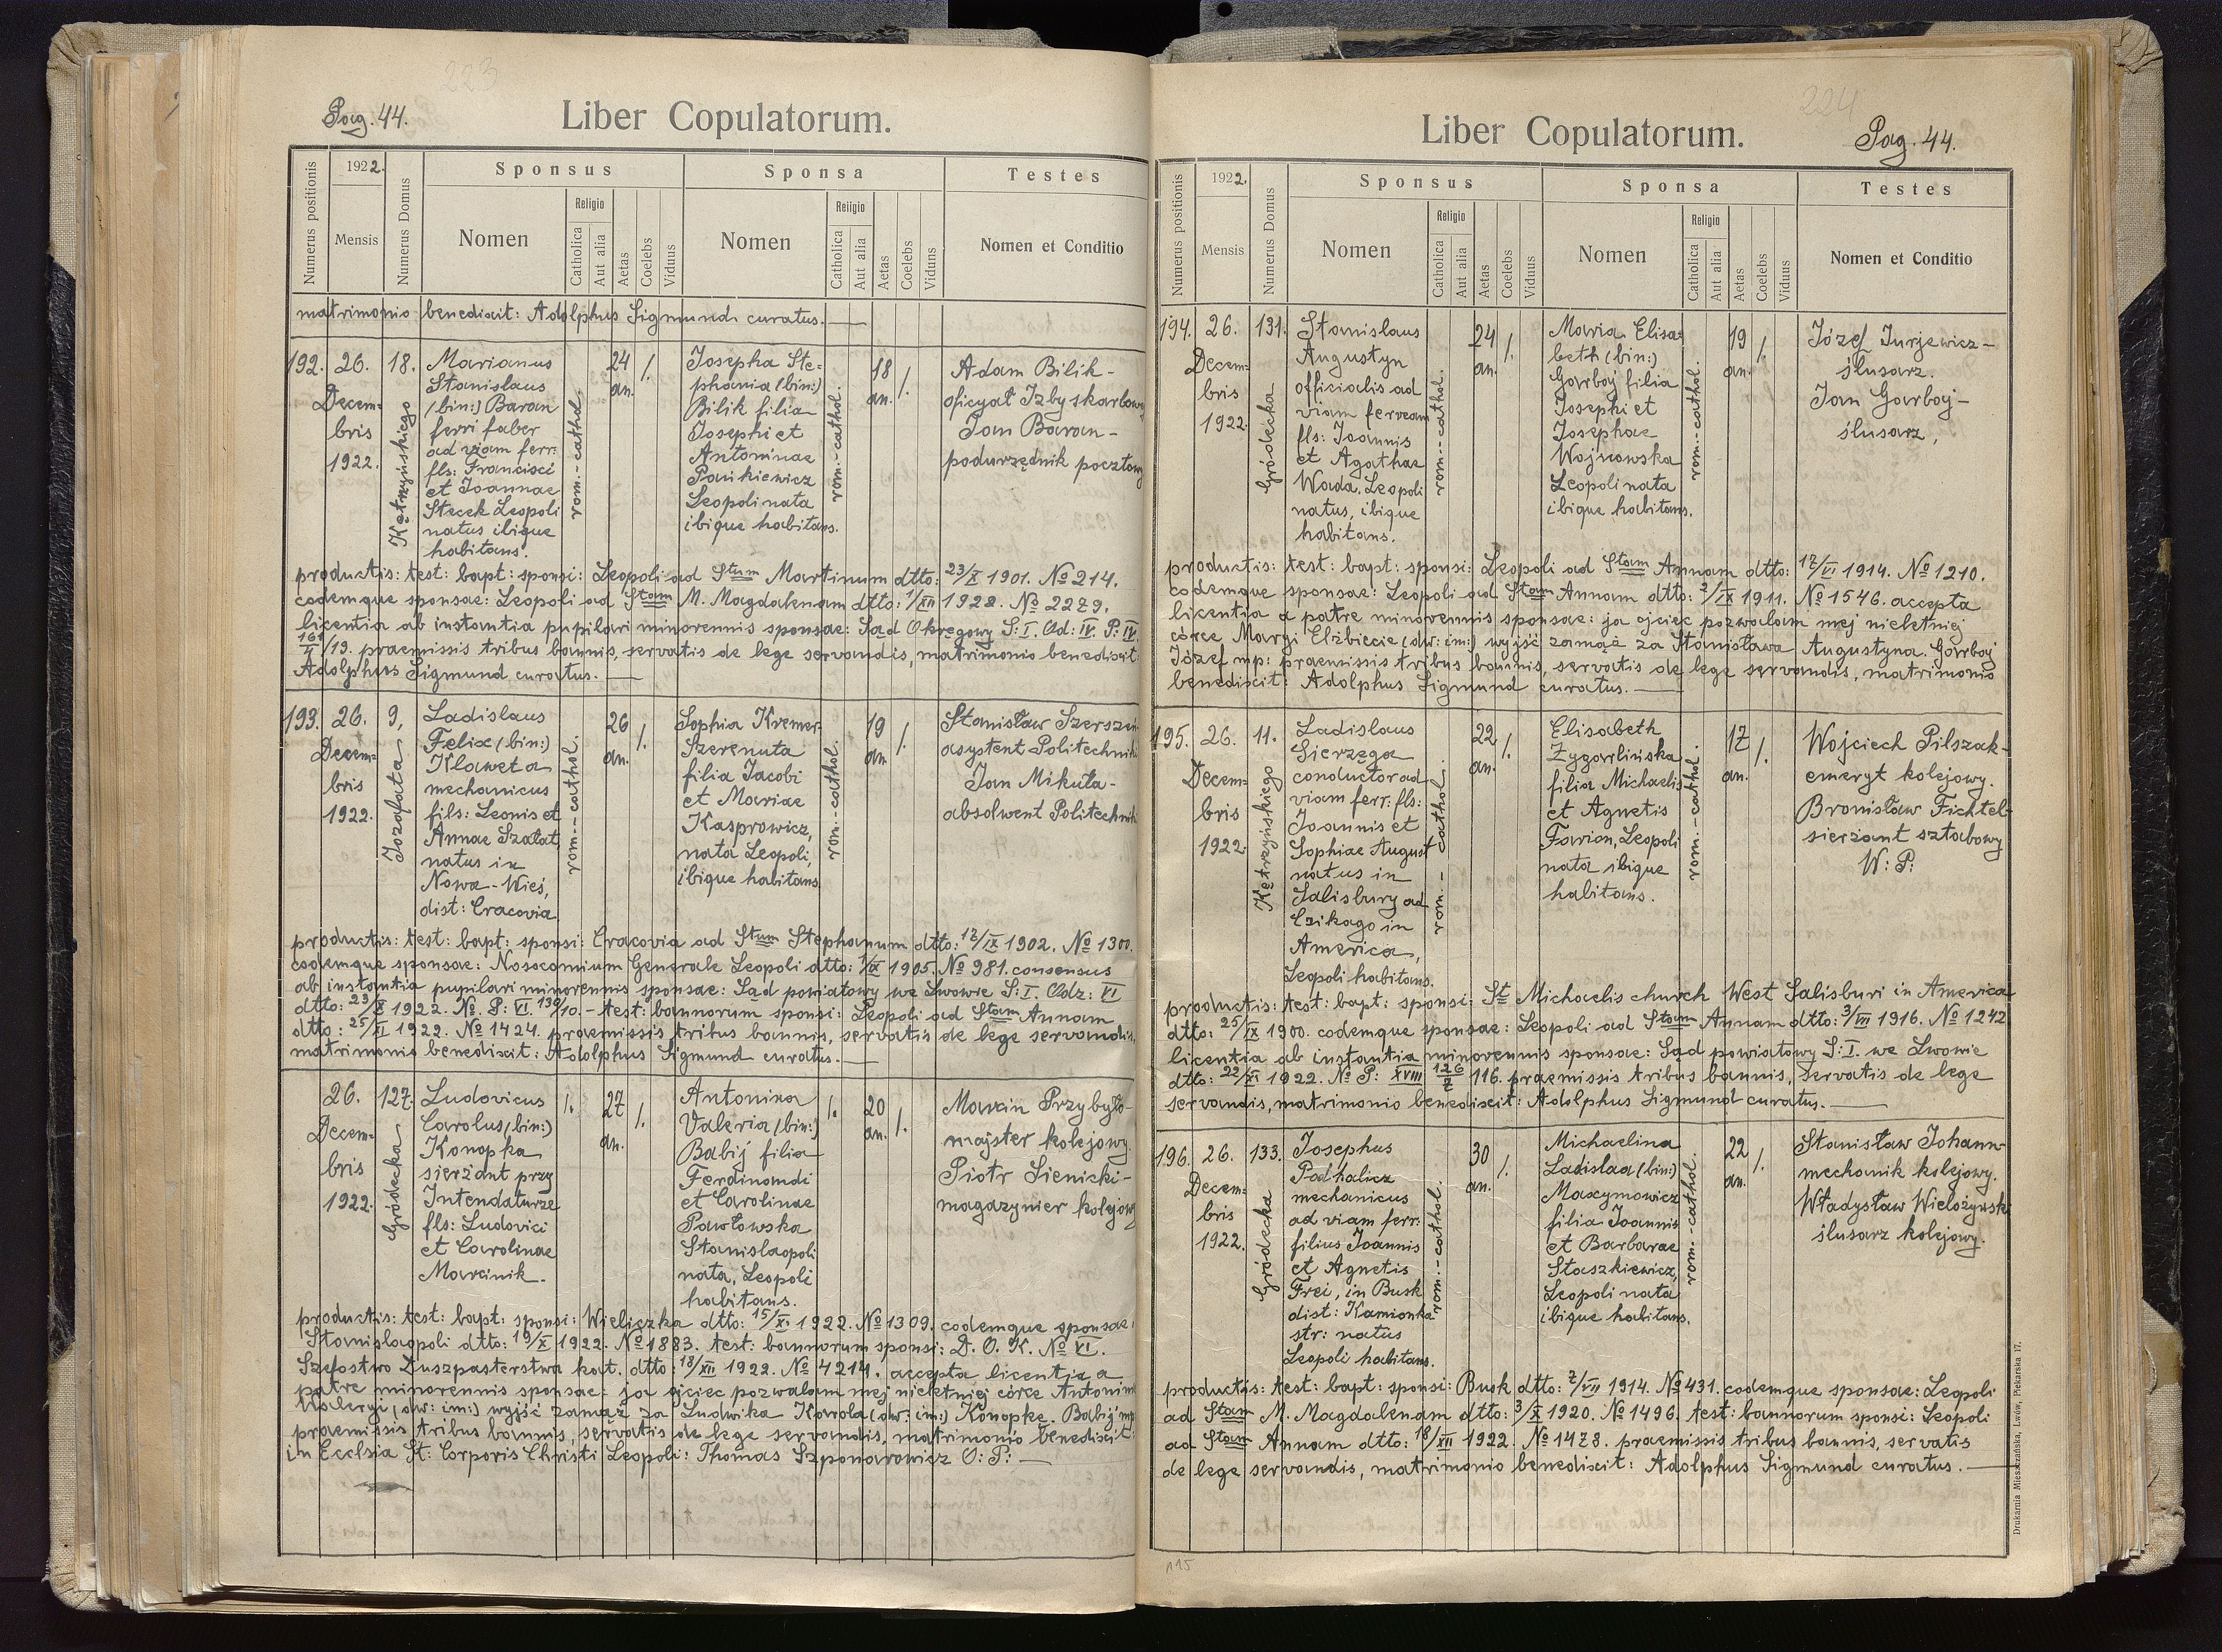 223
Pag. 44.
Liber Copulatorum.
Numerus positionis
1922.
Mensis
Numerus Domus
Sponsus
Nomen
Religio
Catholica
Aut alia
Aetas
Coelebs
Viduus
Sponsa
Nomen
Religio
Catholica
Aut alia
Aetas
Coelebs
Viduus
Testes
Nomen et Conditio
matrimonio benedixit: Adolphus Sigmund curatus.
192. 26. Decem=
bris
1922.
18.
Kętrzyńskiego
Marianus
Stanislaus
(bin:) Baran
ferri faber
ad viam ferr:
fls: Francisci
et Joannae
Stecek Leopoli
natus ibique
habitans.
rom.-cathol.
24
an.
/.
Josepha Ste=
phania (bin:)
Bilik filia
Josephi et
Antoninae
Pańkiewicz
Leopoli nata
ibique habitans.
rom.-cathol.
18
an.
/.
Adam Bilik-
oficyał Izby skarbowej
Jan Baran-
podurzędnik pocztowy
productis: test: bapt: sponsi: Leopoli ad Stum Martinum dtto: 23/X 1901. No 214.
eodemque sponsae: Leopoli ad Stam M. Magdalenam dtto: 1/XII 1922. No 2279.
licentia ab instantia pupilari minorennis sponsae: Sąd Okręgowy S: I. Od: IV P: IV
161/19. praemissis tribus bannis, servatis de lege servandis, matrimonio benedixit:
Adolphus Sigmund curatus.
193. 26.
Decem=
bris
1922.
9,
Jozafata
Ladislaus
Felix (bin:)
Klaweta
mechanicus
fils: Leonis et
Annae Szałat,
natus in
Nowa-Wieś,
dist: Cracovia
rom.-cathol.
26
an.
/.
Sophia Kremer-
Szerenuta
filia Jacobi
et Mariae
Kasprowicz,
nata Leopoli,
ibique habitans.
rom.-cathol.
19
an.
/.
Stanisław Szerszeń
asystent Politechniki
Jan Mikuła-
absolwent Politechniki
productis: test: bapt: sponsi: Cracovia ad Stum Stephanum dtto: 17/IX 1902. No 1300.
eodemque sponsae: Nosocomium Generale Leopoli dtto: 1/IX 1905. No 981. consensus
ab instantia pupilari minorennis sponsae: Sąd powiatowy we Lwowie S: I. Odz: VI
dtto: 23/X 1922. No. P: VI 130/10. - test: bannorum sponsi: Leopoli ad Stam Annam
dtto: 25/XI 1922. No 1424. praemissis tribus bannis, servatis de lege servandis,
matrimonio benedixit: Adolphus Sigmund curatus.
26.
Decem=
bris
1922.
127.
Gródecka
Ludovicus
Carolus (bin:)
Konopka
sierżant przy
Intendaturze
fls: Ludovici
et Carolinae
Marcinik.
/.
27
an.
/.
Antonina
Valeria (bin:)
Babij filia
Ferdinandi
et Carolinae
Pawłowska
Stanislaopoli
nata, Leopoli
habitans.
/.
20
an.
/.
Marcin Przybyło-
majster kolejowy.
Piotr Sienicki-
magazynier kolejowy
productis: test: bapt: sponsi: Wieliczka dtto: 15/X. 1922. No 1309. eodemque sponsae:
Stanislaopoli dtto: 19/X 1922. No 1883. test: bannorum sponsi: D. O. K. No VI.
Szefostwo Duszpasterstwa kat. dtto: 18/XII 1922. No 4214. accepta licentia a
patre minorennis sponsae: ja ojciec pozwalam mej nieletniej córce Antoninie
Waleryi (dw: im:) wyjść zamąż za Ludwika Karola (dw: im:) Konopkę. Babij mp
praemissis tribus bannis, servatis de lege servandis, matrimonio benedixit:
in Ecclsia St: Corporis Christi Leopoli: Thomas Szponarowicz O: P:
224
Liber Copulatorum.
Pag. 44.
Numerus positionis
1922.
Mensis
Numerus Domus
Sponsus
Nomen
Religio
Catholica
Aut alia
Aetas
Coelebs
Viduus
Sponsa
Nomen
Religio
Catholica
Aut alia
Aetas
Coelebs
Viduus
Testes
Nomen et Conditio
194. 26.
Decem=
bris
1922.
131.
Gródecka
Stanislaus
Augustyn
officialis ad
viam ferream
fls: Joannis
et Agathae
Wada, Leopoli
natus, ibique
habitans.
rom.-cathol.
24
an.
/.
Maria Elisa=
beth (bin:)
Garbaj filia
Josephi et
Josephae
Wojnowska
Leopoli nata
ibique habitans.
rom.-cathol.
19
an.
/.
Józef Jurjewicz-
ślusarz.
Jan Garbaj-
ślusarz,
productis: test: bapt: sponsi: Leopoli ad Stam Annam dtto: 17/VI 1914. No 1210.
eodemque sponsae: Leopoli ad Stam Annam dtto: 2/IX 1911. No 1546. accepta
licentia a patre minorennis sponsae: ja ojciec pozwalam mej nieletniej
córce Maryi Elżbiecie (dw: im:) wyjść zamąż za Stanisława Augustyna. Garbaj
Józef mp: praemissis tribus bannis, servatis de lege servandis, matrimonio
benedixit: Adolphus Sigmund curatus.
195. 26.
Decem=
bris
1922.
11.
Kętrzyńskiego
Ladislaus
Sierzęga
conductor ad
viam ferr: fls:
Joannis et
Sophiae August
natus in
Salisbury ad
Czikago in
America,
Leopoli habitans.
rom.-cathol.
22
an.
/.
Elisabeth
Zygarlińska
filia Michaelis
et Agnetis
Farion, Leopoli
nata ibique
habitans.
rom.-cathol.
17
an.
/.
Wojciech Pilszak-
emeryt kolejowy.
Bronisław Fichtel-
sierżant sztabowy
W: P:
productis: test: bapt: sponsi: St Michaelis church West Salisburi in America
dtto: 25/IX 1900. eodemque sponsae: Leopoli ad Stam Annam dtto: 3/VIII 1916. No 1242
licentia ab instantia minorennis sponsae: Sąd powiatowy S: I. we Lwowie
dtto: 22/XI 1922. No P: XVIII 126/Z 116. praemissis tribus bannis, servatis de lege
servandis, matrimonio benedixit: Adolphus Sigmund curatus.
196. 26.
Decem=
bris
1922.
133.
Gródecka
Josephus
Padhalicz
mechanicus
ad viam ferr:
filius Joannis
et Agnetis
Frei, in Busk
dist: Kamionka
str: natus
Leopoli habitans.
rom.-cathol.
30
an.
/.
Michaelina
Ladislaa (bin:)
Maxymowicz
filia Joannis
et Barbarae
Staszkiewicz,
Leopoli nata
ibique habitans.
rom.-cathol.
22
an.
/.
Stanisław Johann-
mechanik kolejowy.
Władysław Wielożyński
ślusarz kolejowy.
productis: test: bapt: sponsi: Busk dtto: 7/VII 1914. No 431. eodemque sponsae: Leopoli
ad Stam M. Magdalenam dtto: 3/X 1920. No 1496. test: bannorum sponsi: Leopoli
ad Stam Annam dtto: 18/XII 1922. No 1478. praemissis tribus bannis, servatis
de lege servandis, matrimonio benedixit: Adolphus Sigmund curatus.
Drukarnia Mieszczańska, Lwów, Piekarska 17.
115